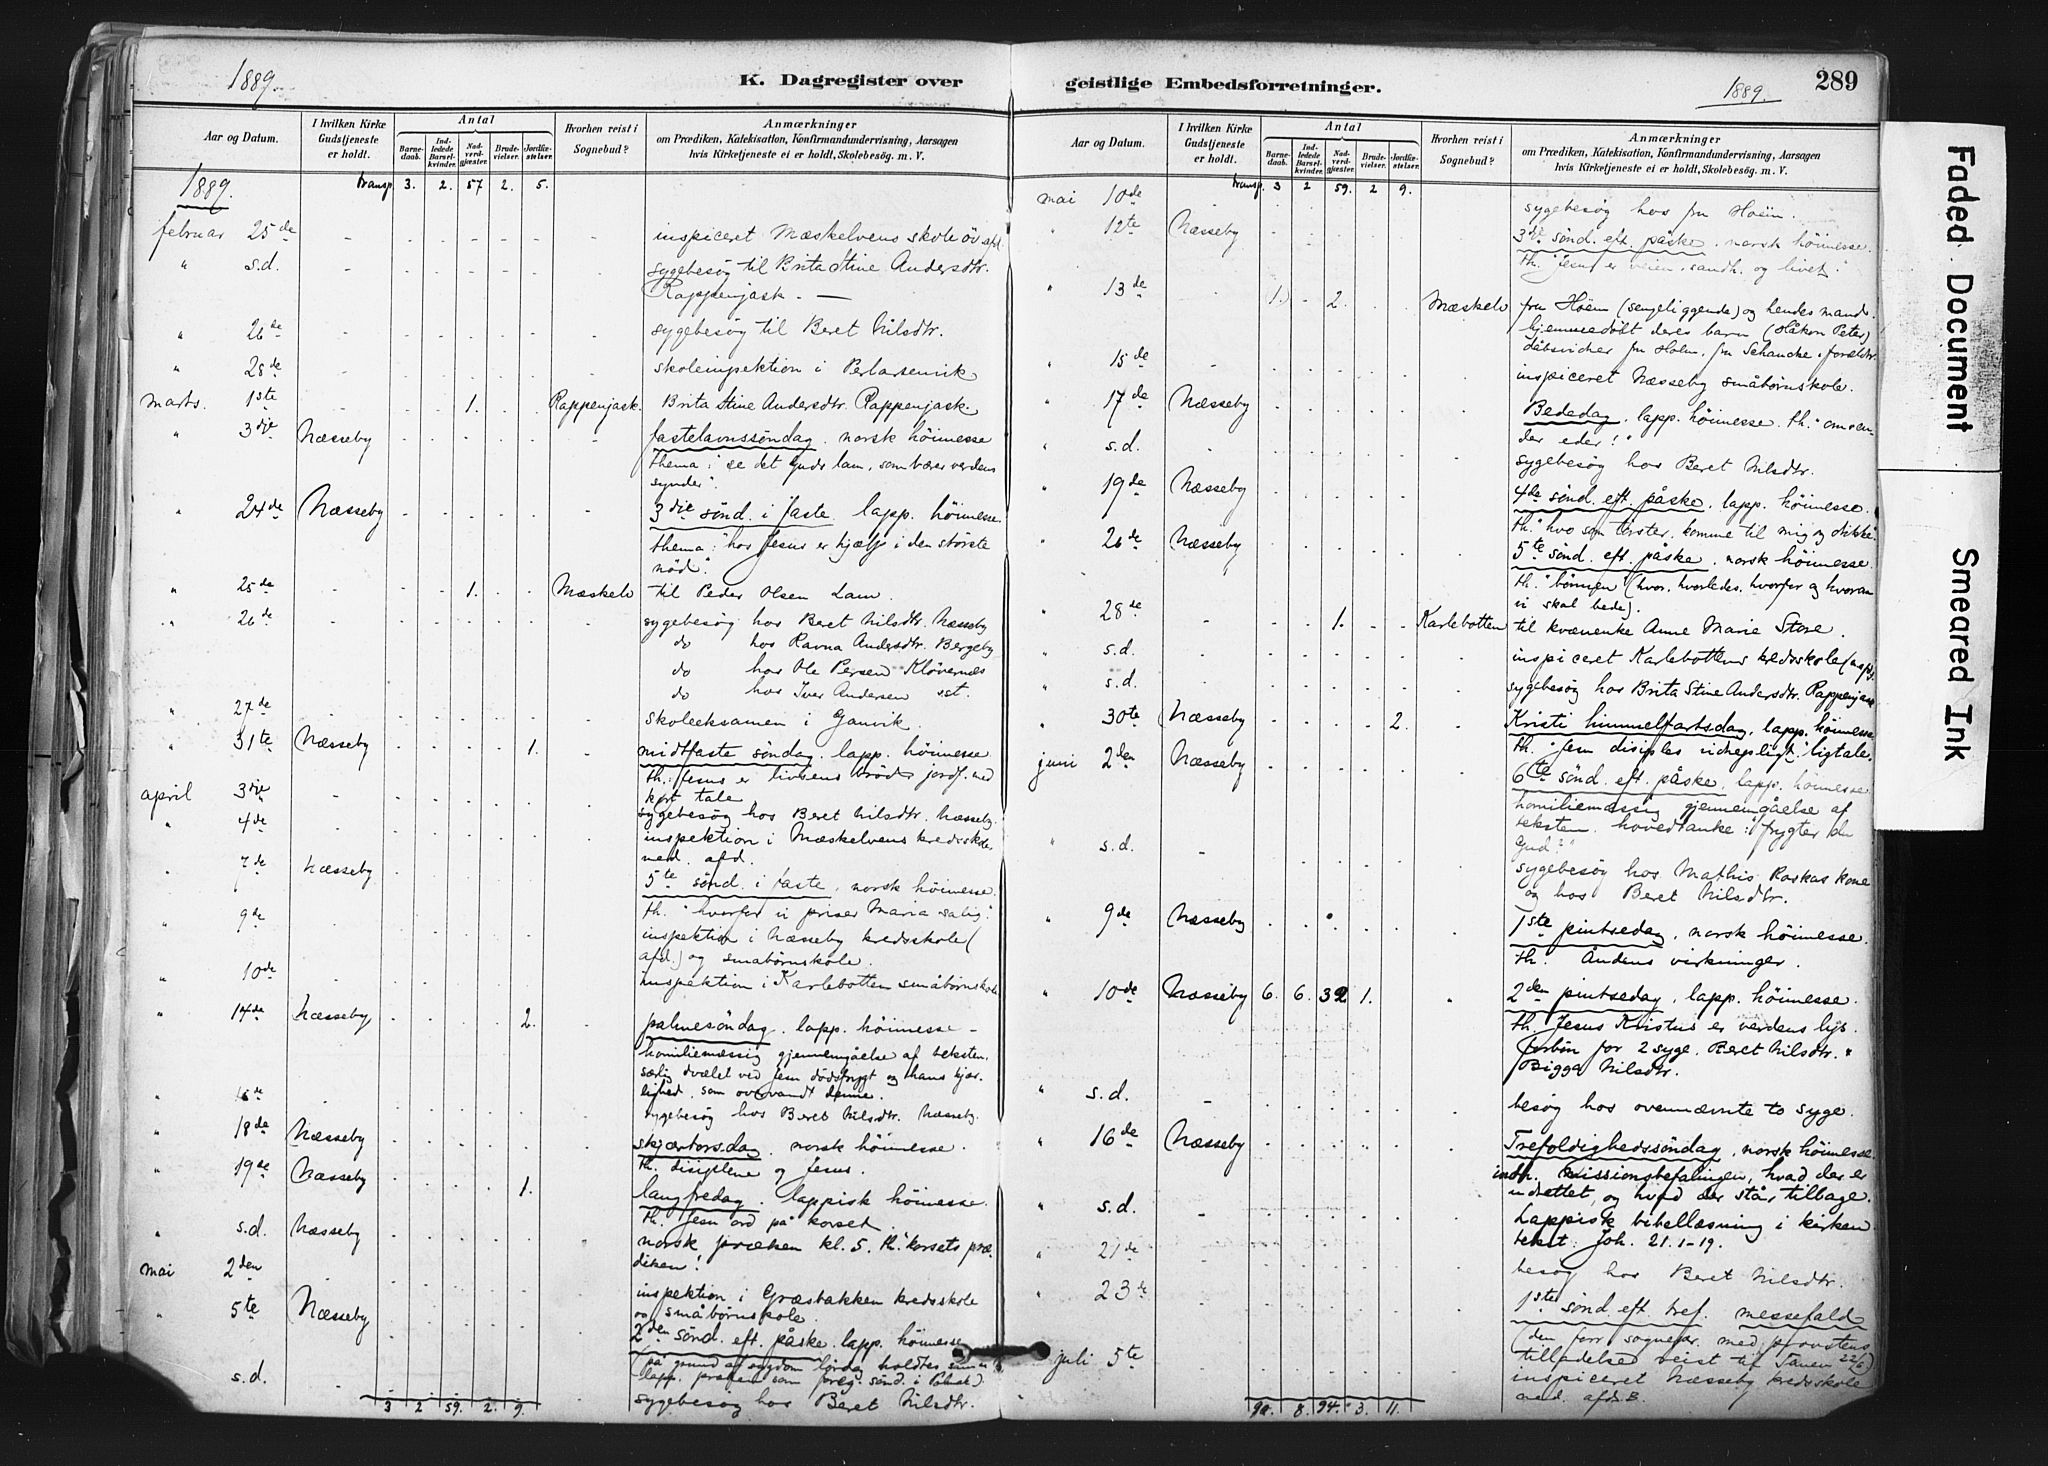 1889.
K. Dagregister over
Aar og Datum. I hvilken Kirke Gudstjeneste er holdt. Antal Barnedaab. Indledede Barselkvinder. Nadverdgjæster. Brudevielser. Jordfæstelser. Hvorhen reist i Sognebud? Anmærkninger
om Prædiken, Katekisation, Konfirmandundervisning, Aarsagen
hvis Kirketjeneste ei er holdt, Skolebesøg. m. V.
1889. transp. 3. 2. 57 2. 5.
februar 25de inspiceret Mæskelvens skole öv. afd.
" s.d. sygebesøg til Brita Stine Andersdtr.
Rappenjask. —
" 26de sygebesøg til Beret Nilsdtr.
" 28de skoleinspektion i Perlarsenvik
marts. 1ste 1. Rappenjask. Brita Stine Andersdtr. Rappenjask.
" 3dje Næsseby fastelavnssöndag. norsk höimesse
thema: "se det Guds lam, som bærer verdens
synder".
" 24de Næsseby 3die sönd. i faste lapp. höimesse.
thema: "hos Jesus er hjælp i den störste
nöd".
" 25de 1. Mæskelv til Peder Olsen Lam.
" 26de sygebesøg hos Beret Nilsdtr. Næsseby
do hos Ravna Andersdtr. Bergeby
do hos Ole Persen Klövernæs
do hos Iver Andersen sst.
" 27de skoleeksamen i Ganvik.
" 31te Næsseby 1. midtfaste söndag. lapp. höimesse
th.: Jesus er livsens bröd. jordf. med
kort tale
april 3die sygebesøg hos Beret Nilsdtr. Næsseby.
" 4de inspektion i Mæskelvens kredsskole,
ned. afd.
" 7de Næsseby 5te sönd. i faste, norsk höimesse.
th. "hvorfor vi priser Maria salig."
" 9de inspektion i Næsseby kredsskole (
afd.) og småbörnskole.
" 10de inspektion i Karlebotten småbörnskole
" 14de Næsseby 2. palmesöndag. lapp. höimesse —
homiliemæssig gjennemgåelse af teksten.
særlig dvælet ved Jesu dödsfrygt og hans kjær-
lighed, som overvandt denne.
" 16de sygebesøg hos Beret Nilsdtr. Næsseby.
" 18de Næsseby skjærtorsdag. norsk höimesse.
th. disiplene og Jesus.
" 19de Næsseby 1. langfredag. lappisk höimesse.
th. Jesu ord på korset.
" s.d. Næsseby norsk præken kl. 5. th. "korsets præ-
diken!
mai 2den inspektion i Græsbakken kredsskole
og småbörnskole.
" 5te Næsseby 2den sönd. eft. påske. lapp. höimesse
(på grund af sygdom lørdag holdtes samme
lapp. præken som foreg. sönd. i Polmak).
s.d. sygebesøg hos Beret Nilsdtr.
3 2 59. 2. 9.
geistlige Embedsforretninger.
1889.
289
Aar og Datum. I hvilken Kirke Gudstjeneste er holdt. Antal Barnedaab. Indledede Barselkvinder. Nadverdgjæster. Brudevielser. Jordfæstelser. Hvorhen reist i Sognebud? Anmærkninger
om Prædiken, Katekisation, Konfirmandundervisning, Aarsagen
hvis Kirketjeneste ei er holdt, Skolebesøg. m. V.
transp. 3 2 59. 2 9.
mai 10de sygebesøg hos fru Hoëm.
" 12te Næsseby 3die sönd. eft. påske. norsk höimesse
th. "Jesus er veien, sandh. og livet."
" 13de 1. 2. Mæskelv fru Hoëm (sengeliggende) og hendes mand.
hjemmedöbt deres barn (Håkon Peter)
dåbsvidner fru Holm, fru Schancke, forældr.
" 15de inspiceret Næsseby småbörnskole.
" 17de Næsseby Bededag. lapp. höimesse. th. "omven-
der eder!"
" s.d. sygebesøg hos Beret Nilsdtr.
" 19de Næsseby 4de sönd. eft. påske. lapp. höimesse.
th. "hvo som törster, komme til mig og drikke".
" 26de Næsseby 5te sönd. eft. påske. norsk höimesse.
th. "bönnen" (hvor, hvorledes, hvorfor og hvoran
vi skal bede).
" 28de 1. Karlebotten til kvænenke Anne Marie Store.
" s.d. inspiceret Karlebottens kredsskole
" s.d. sygebesøg hos Brita Stine Andersdtr. Rappenjask
" 30te Næsseby 2. Kristi himmelfartsdag, lapp. höimesse
th. "Jesu disiples ligtale.
juni 2den Næsseby 6te sönd. eft. påske, lapp. höimesse
homiliemæssig gjennemgåelse af
teksten. hovedtanke: "frygter du
Gud?"
" s.d. sygebesøg hos Mathis Raskas kone
og hos Beret Nilsdtr.
" 9de Næsseby 1ste pintsedag, norsk höimesse.
th. Åndens virkninger.
" 10de Næsseby 6. 6. 32 1. 2den pintsedag, lapp. höimesse.
th. Jesus Kristus er verdens lys.
forbön for 2 syge. Beret Nilsdtr. "
Bigga Nilsdtr.
" s.d. besøg hos ovennævnte to syge.
" 16de Næsseby Trefoldighedssöndag, norsk höimesse.
indh. missionsbefalingen, hvad der er
udrettet, og hvad der står tilbage.
" s.d. Lappisk bibellæsning i kirken
tekst: Joh. 21. 1-19.
" 21de besøg hos Beret Nilsdtr.
" 23de 1ste sönd. eft. tref. messefald
(den forr. sognepr. med provstens
tilladelse reist til Tanen 22/6)
juli 5te inspiceret Næsseby kredsskole
ned. afd. B.
9a. 8. 94. 3. 11.
Faded Document
Smeared Ink